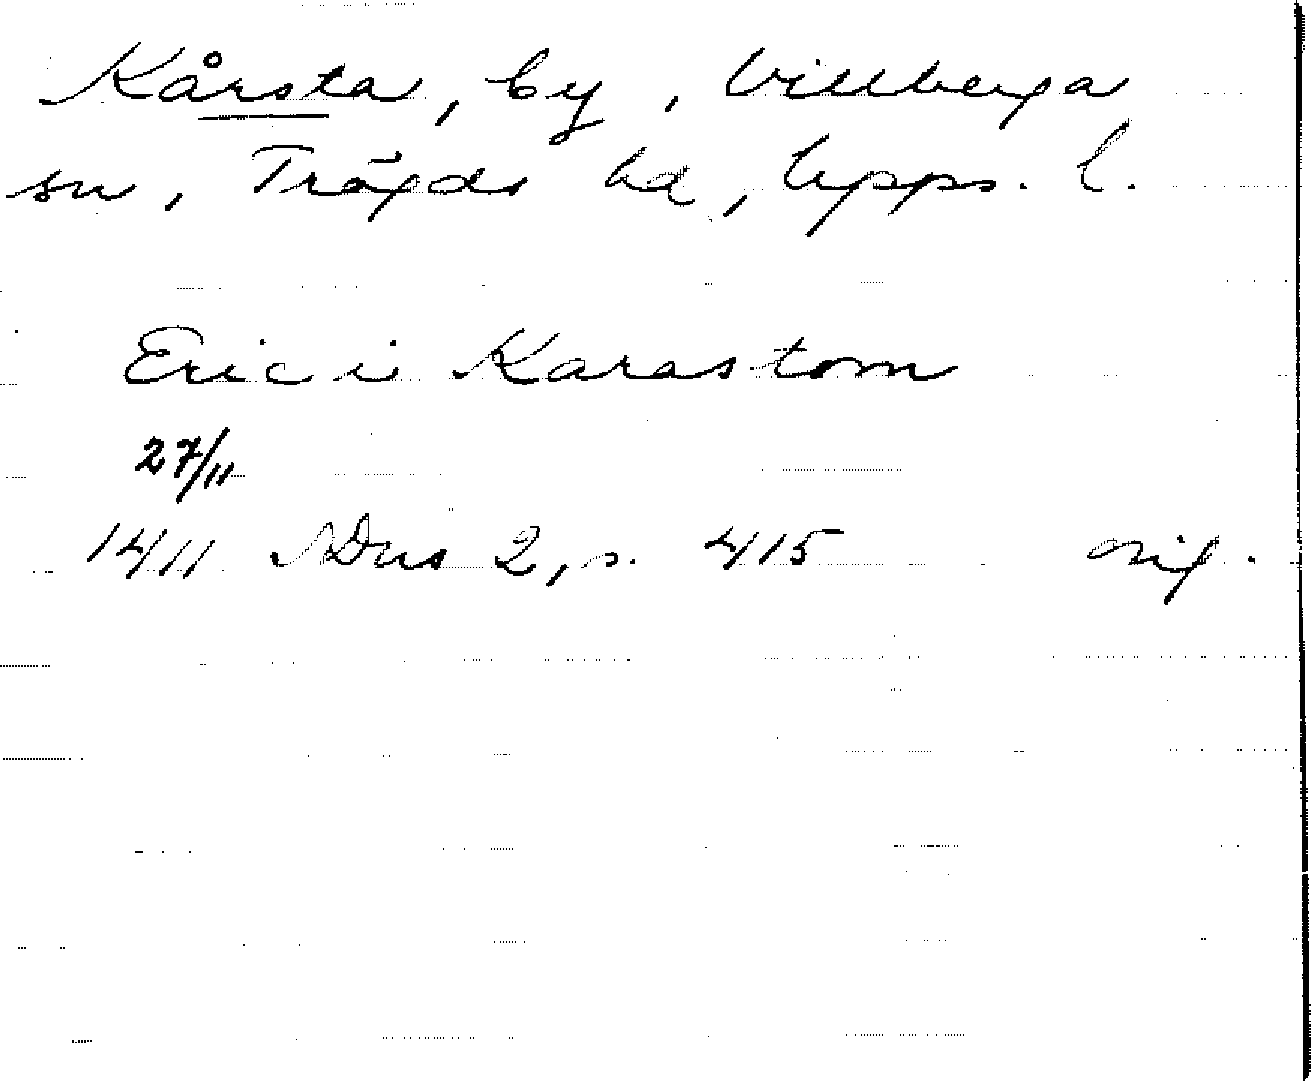 Kårsta, by, Villberga
sn, Trögds hd, Upps. l.
Eric i Karastom
27/11
14/11 NDus 2, s. 415 orig.